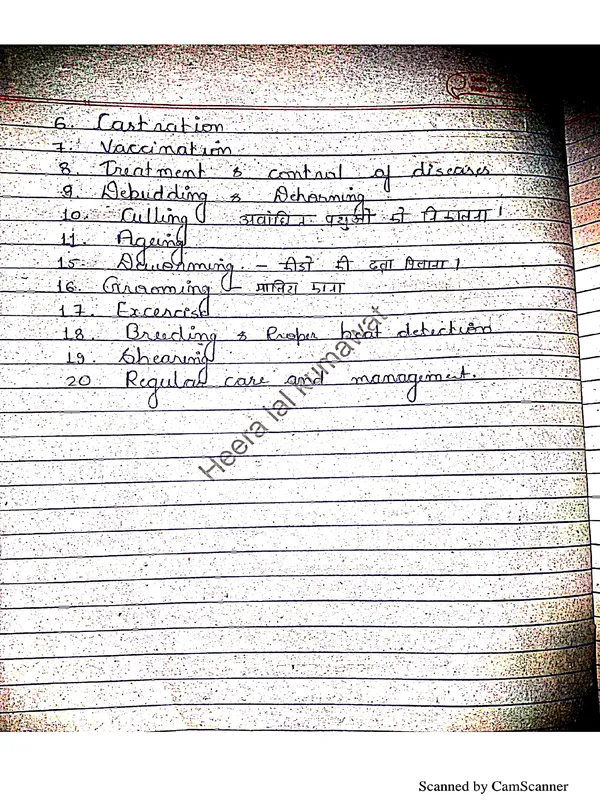 6. Castration
7. Vaccination
8. Treatment & control of diseases
9. Debudding & Dehorning
10. Culling अवांछित पशुओं को निकालना।
11. Ageing
15. Deworming - कीडों की दवा पिलाना।
16. Grooming - मालिश करना
17. Excercise
18. Breeding & Proper heat detection
19. Shearing
20 Regular care and management.
Heera lal kumawat
Scanned by CamScanner